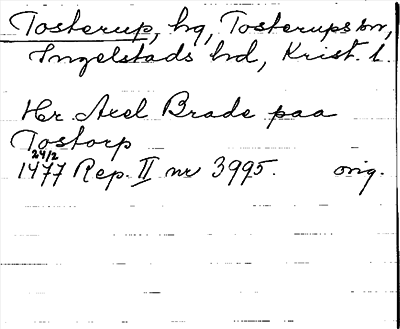 Tosterup, hg, Tosterups sn,
Ingelstads hd, Krist. l.
Hr. Axel Brade paa
Tostorp
24/2
1477 Rep. II nr 3995. orig.